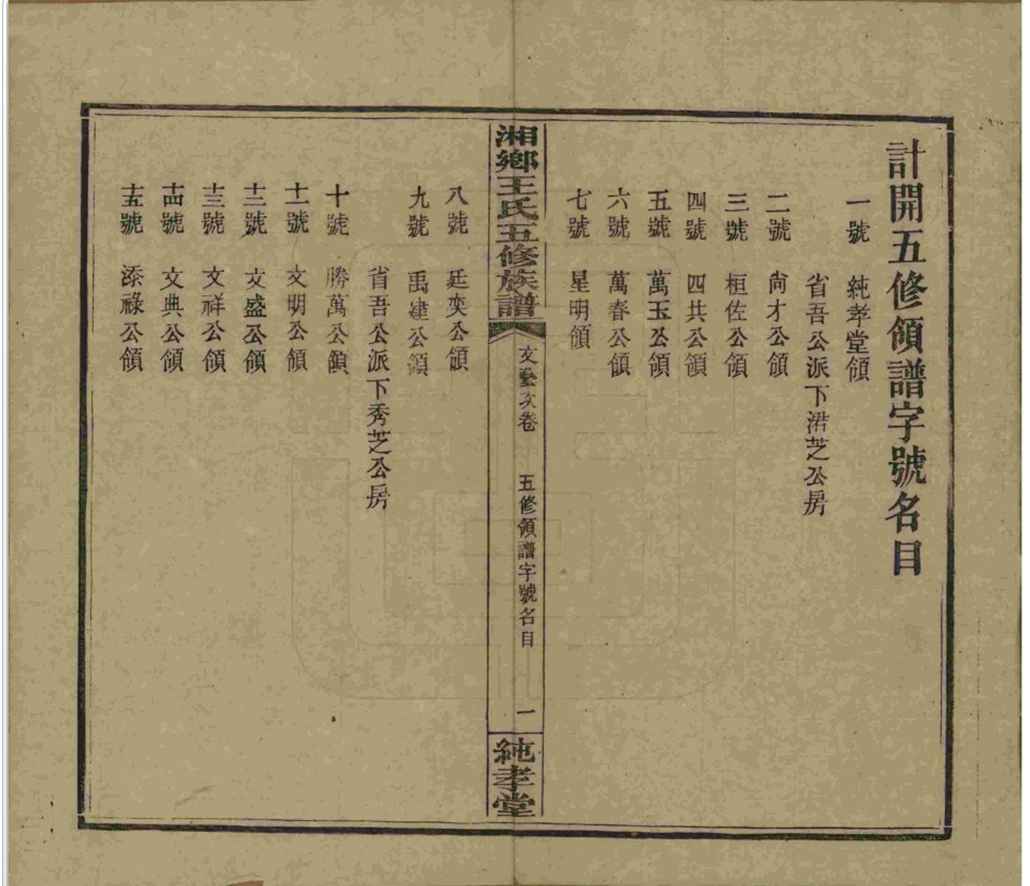 計開五修領譜字號名目
一號 純孝堂領
省吾公派下湝芝公房
二號 尙才公領
三號 桓佐公領
四號 四共公領
五號 萬玉公領
六號 萬春公領
七號 星明領
湘鄉王氏五修族譜
文藝次卷 五修領譜字號名目 一
純孝堂
八號 廷奕公領
九號 禹建公領
省吾公派下秀芝公房
十號 勝萬公領
十一號 文明公領
十二號 文盛公領
十三號 文祥公領
十四號 文典公領
十五號 添祿公領